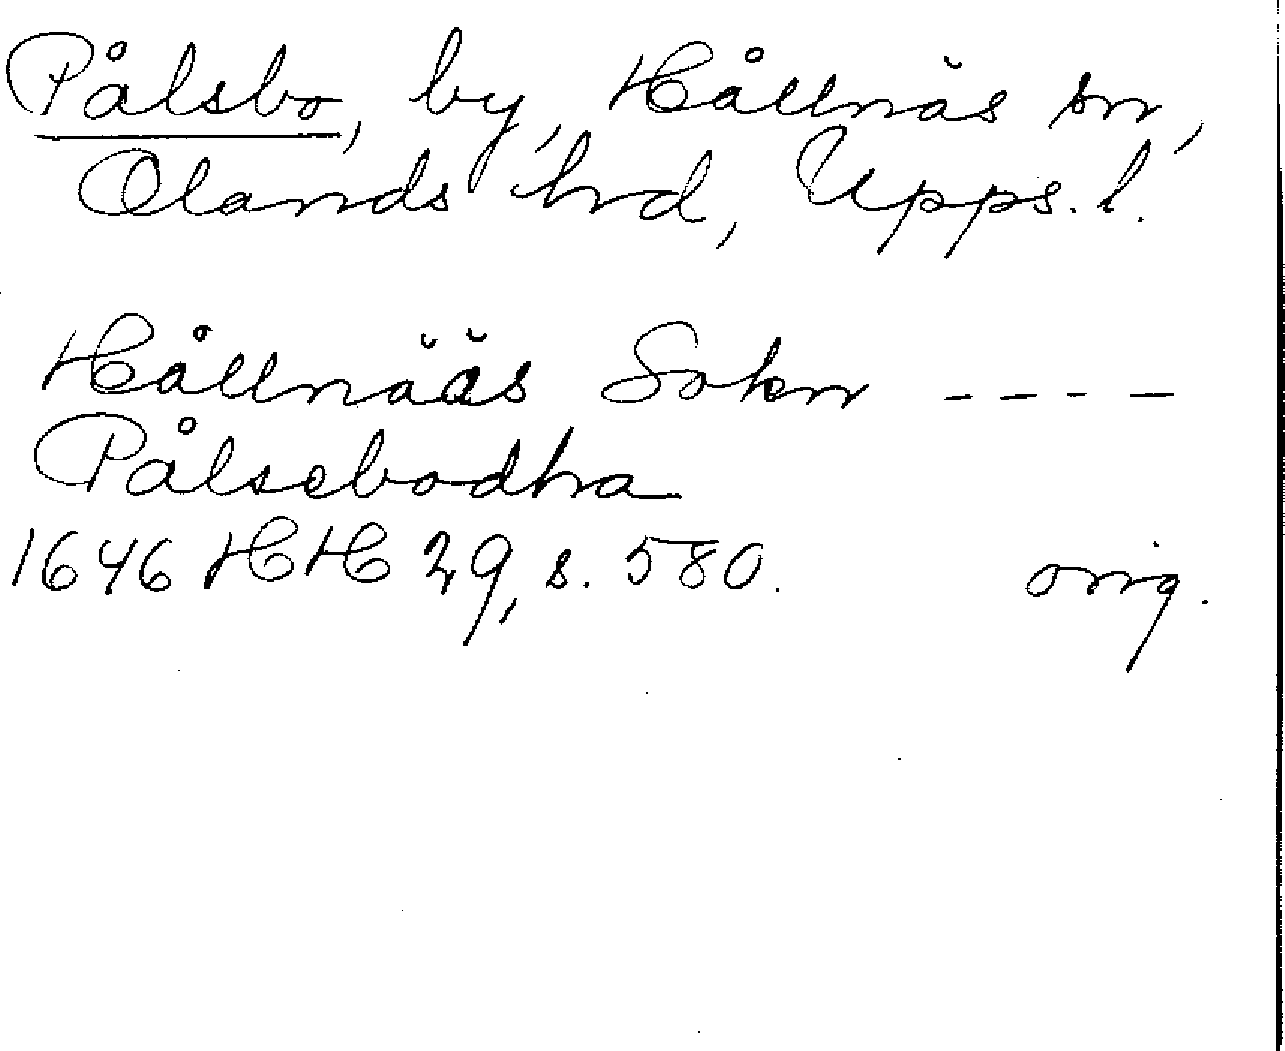 Pålsbo, by, Hållnäs sn,
Olands hrd, Upps. l.
Hållnääs Sokn ----
Pålsebodha
1646 HH 29, s. 580. orig.